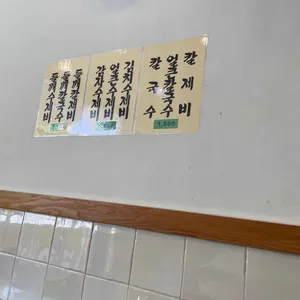 들깨수제비
들깨칼국수
들깨칼제비
감자수제비
얼큰수제비
김치수제비
칼국수
얼큰칼국수
칼제비